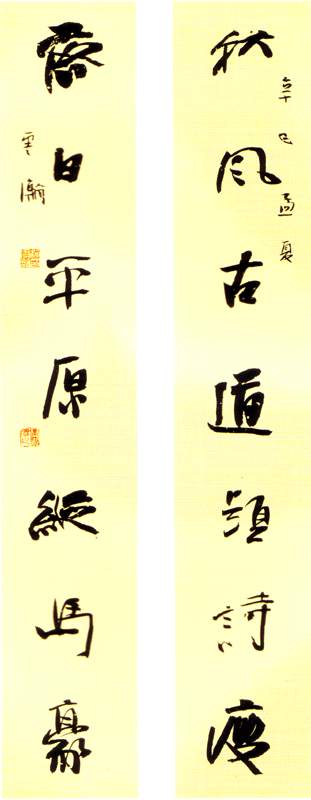 秋風古道題詩瘦
辛巳孟夏
落日平原縱馬豪
雲瀚